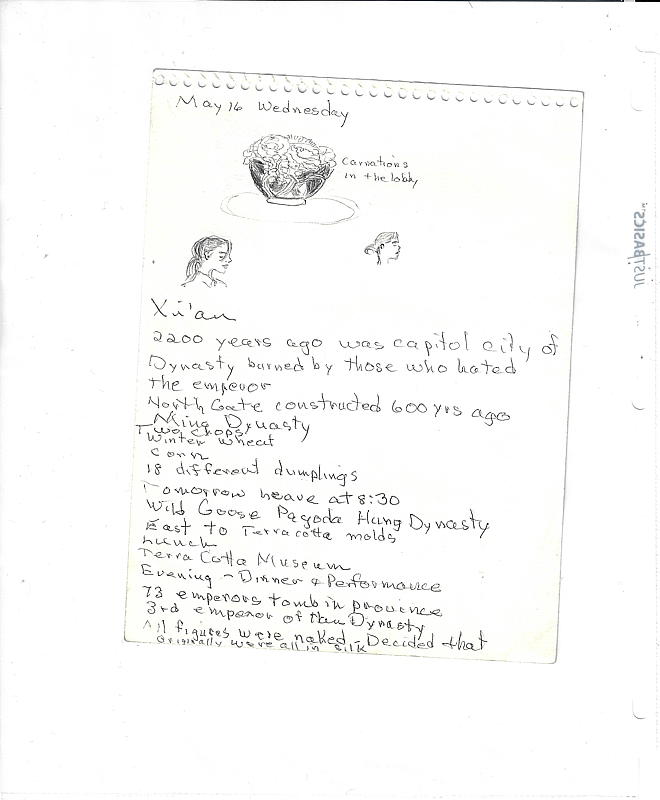 May 16 Wednesday
Carnations
in the lobby
Xi'an
2200 years ago was capitol city of
Dynasty burned by those who hated
the emperor
North Gate constructed 600 yrs ago
Ming Dynasty
Two crops
Winter wheat
Corn
18 different dumplings
Tomorrow leave at 8:30
Wild Goose Pagoda Hang Dynasty
East to Terracotta molds
Lunch
Terra Cotta Museum
Evening - Dinner & Performance
73 emperors tomb in province
3rd emperor of Han Dynasty
All figures were naked - Decided that
Originally were all in silk
JUSTBASICS